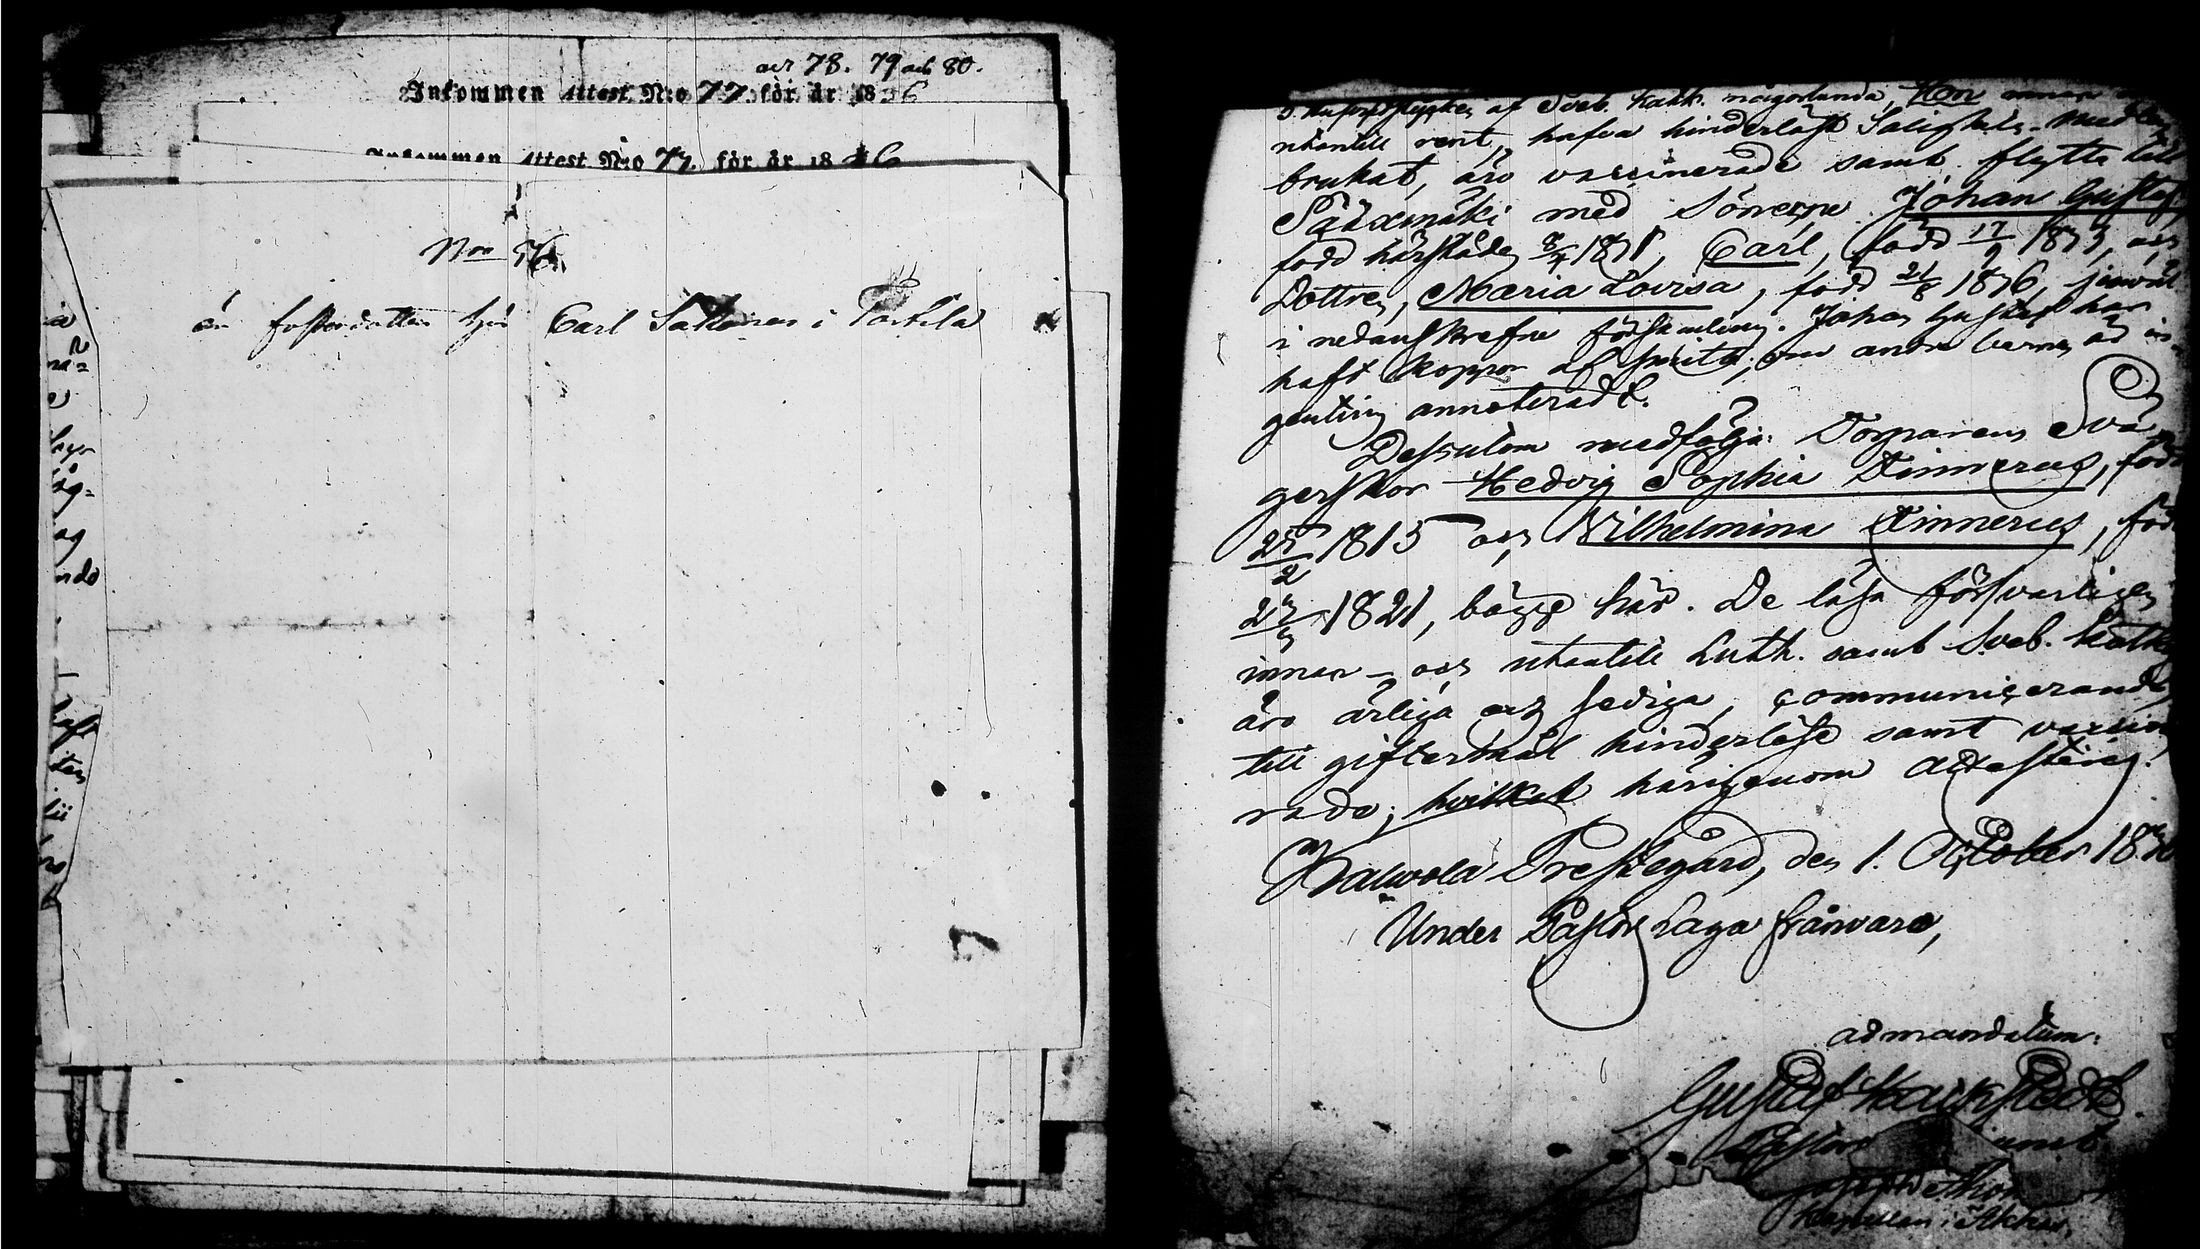 och 78. 79 och 80.
Inkommen Attest N:o 77 för år 1836
Inkommen Attest N:o 77. för år 18 6
Nro 76.
är fosterdotter hos Carl i
af Sveb. Katk. någorlunda, Hon innan
utantill rent, hafva hinderlöst Salighets-medlen
brukat, äro vaccinerade samt flytta till
Sääxmäki med Sönerne Johan Gustaf,
född härstädes 1831, Carl, född 17/9 1833, och
Dottren, Maria Lovisa, född 21/8 1836,
i nedanskrefne församling. Johan Gustaf har
haft koppor af smitta, om andra barnen är in-
genting annoteradt.
Dessutom medfölja: Torparens Svä-
gerskor Hedvig Sophia Dinnerus, född
25/2 1815 och Wilhelmina Dinnerus, född
1821, bägge här. De läsa försvarligen
innan- och utantill Luth. samt Sveb. Katk.
äro ärliga och sediga, communicerande,
till giftermål hinderlöse samt vaccine-
rade; hvilket härigenom attesteras.
Kalwola Prestegård, den 1. October 183
Under Pastors Laga frånvaro,
ad mandatum:
Gustaf
Pastor
Kapellan i